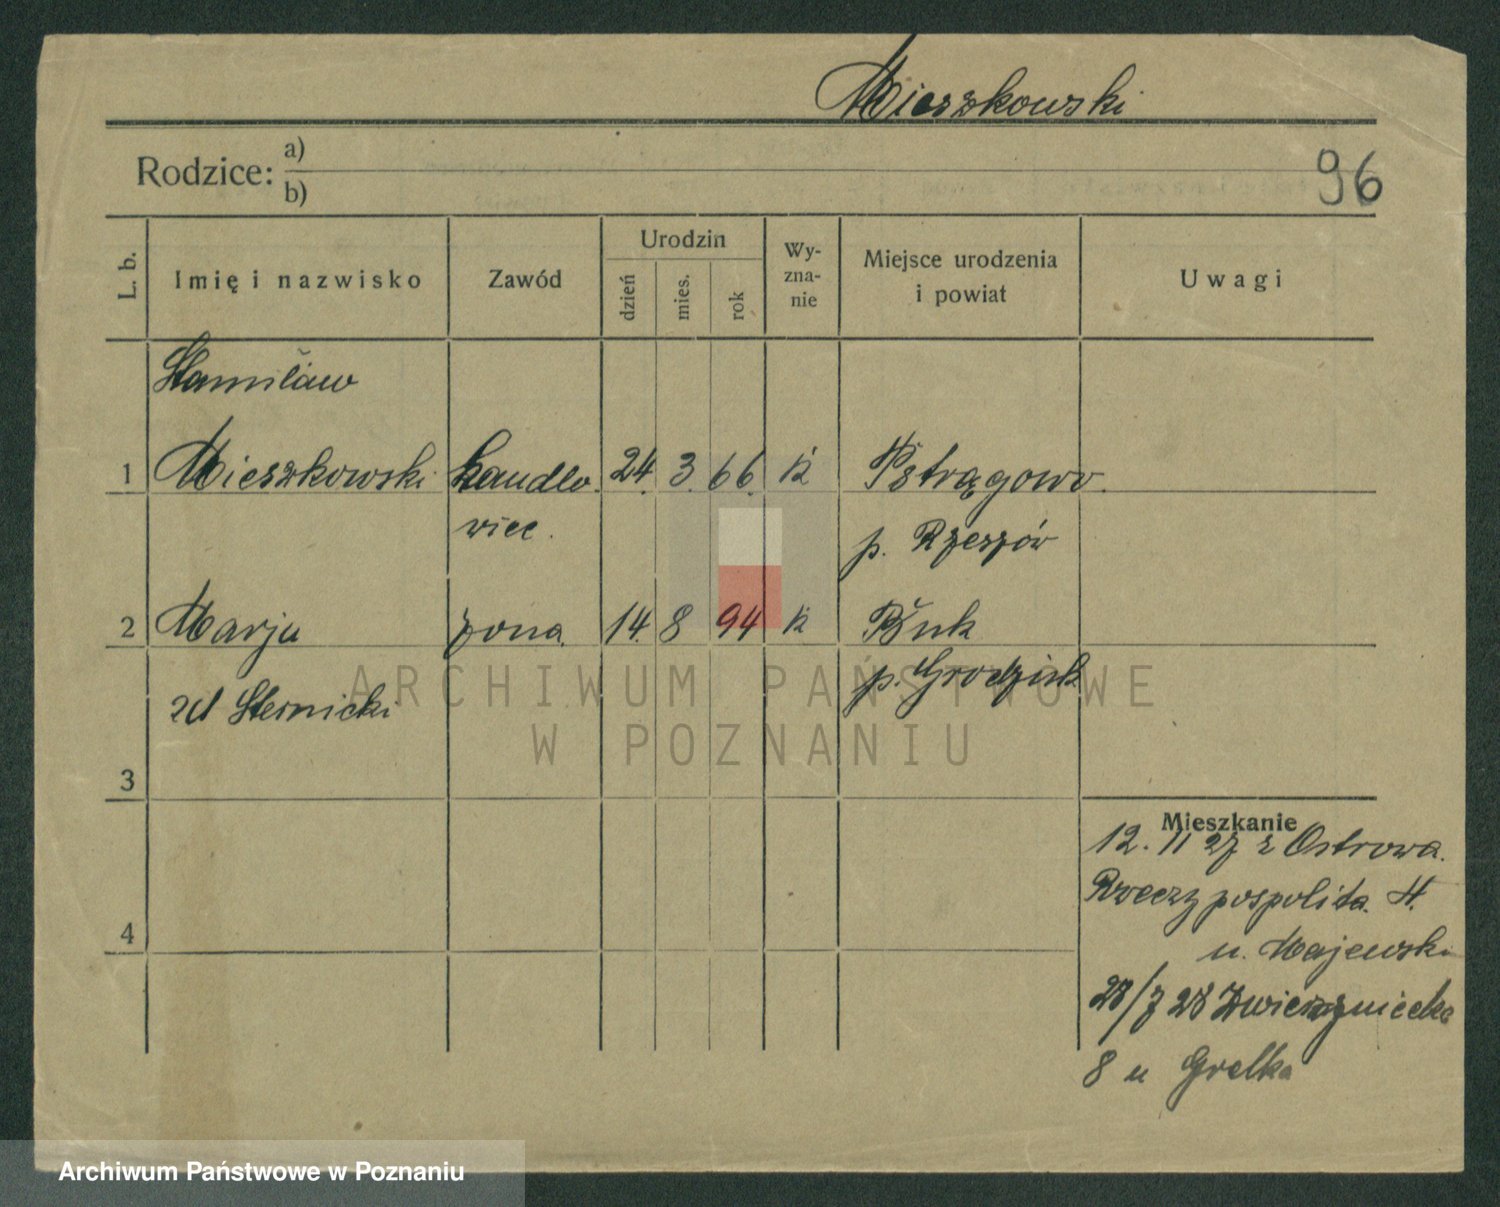 Mieszkowski
Rodzice: a)
b)
96
L. b.
Imię i nazwisko
Zawód
Urodzin
dzień
mies.
rok
Wy-
zna-
nie
Miejsce urodzenia
i powiat
Uwagi
Stanisław
1 Mieszkowski handlo 24. 3. 66. k Pstrągowo.
wiec. p. Rzeszów
2 Marja żona 14. 8 94 k Buk
zd Sternicki p. Grodzisk
3
4
Mieszkanie
12. 11 27 z Ostrowa.
Rzeczypospolita 4.
u. Majewski
28/7 28 Zwierzyniecka
8 u Grelka
ARCHIWUM PAŃSTWOWE
W POZNANIU
Archiwum Państwowe w Poznaniu